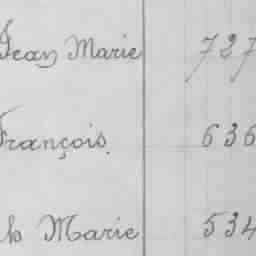 Jean Marie 727
François. 636
Marie 534